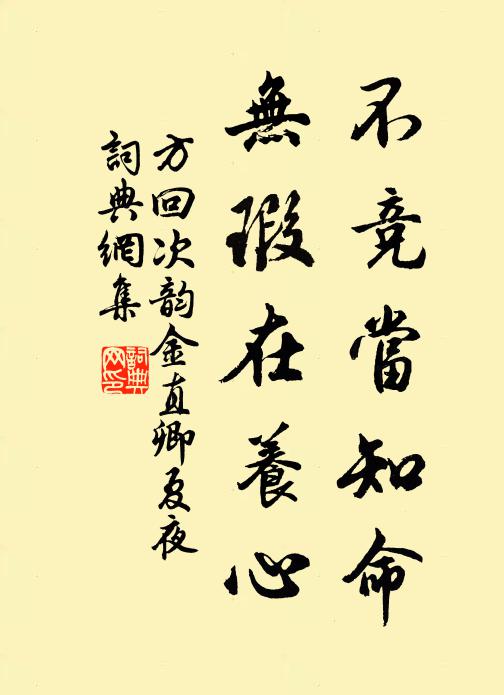 不竞當知命
無瑕在養心
方回次韵金直卿夏夜
詞典網集
詞典
网印